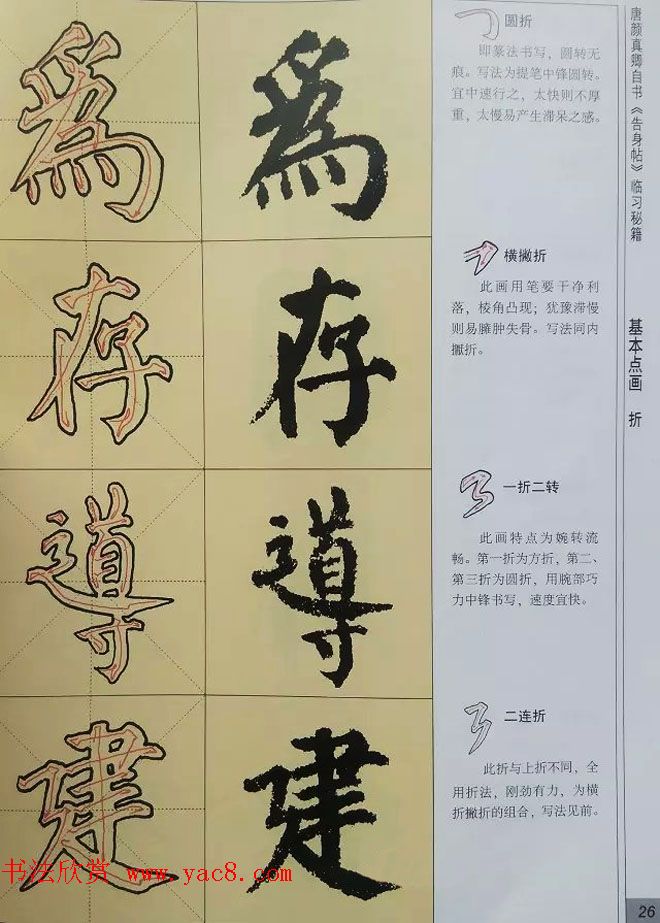 唐颜真卿自书《告身帖》临习秘籍
基本点画 折
為
為
圆折
即篆法书写，圆转无
痕。写法为提笔中锋圆转。
宜中速行之，太快则不厚
重，太慢易产生滞呆之感。
存
存
横撇折
此画用笔要干净利
落，棱角凸现；犹豫滞慢
则易臃肿失骨。写法同内
擫折。
導
導
一折二转
此画特点为婉转流
畅。第一折为方折，第二、
第三折为圆折，用腕部巧
力中锋书写，速度宜快。
建
建
二连折
此折与上折不同，全
用折法，刚劲有力，为横
折撇折的组合，写法见前。
书法欣赏 www.yac8.com
26